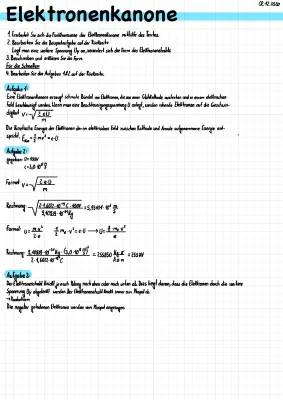 02.12.2020
Elektronenkanone
1. Erarbeitet Sie sich die Funktionsweise der Elektronenkanone mithilfe des Textes.
2. Bearbeiten Sie die Beispielaufgabe auf der Rückseite.
Liegt man eine weitere Spannung Up an, verändert sich die Form des Elektronenstrahls
3. Beschreiben und erklären Sie die Form.
Für die Schnellen:
4. Bearbeiten Sie die Aufgaben 1&2 auf der Rückseite.
Aufgabe 1:
Eine Elektronenkanone erzeugt schmale Bündel von Elektronen, die aus einer Glühkathode austreten und in einem elektrischen
Feld beschleunigt werden. Wenn man eine Beschleunigungsspannung U anlegt, werden ruhende Elektronen auf die Geschwin-
digkeit v=√(2·e·U/m)
Die kinetische Energie der Elektronen der im elektrischen Feld zwischen Kathode und Anode aufgenommene Energie ent-
spricht: E = 1/2 m·v² = e·U
Aufgabe 2:
gegeben: U=100V
Formel v=√(2·e·U/m)
Rechnung
Formel U= m·v²/2·e
Rechnung
Aufgabe 3:
Der Elektronenstrahl knickt je nach Polung nach oben oder nach unten ab. Dies liegt daran, dass die Elektronen durch die weitere
Spannung Up abgelenkt werden. Der Elektronenstrahl knickt immer zum Pluspol ab.
Die negativ geladenen Elektronen werden vom Pluspol angezogen.